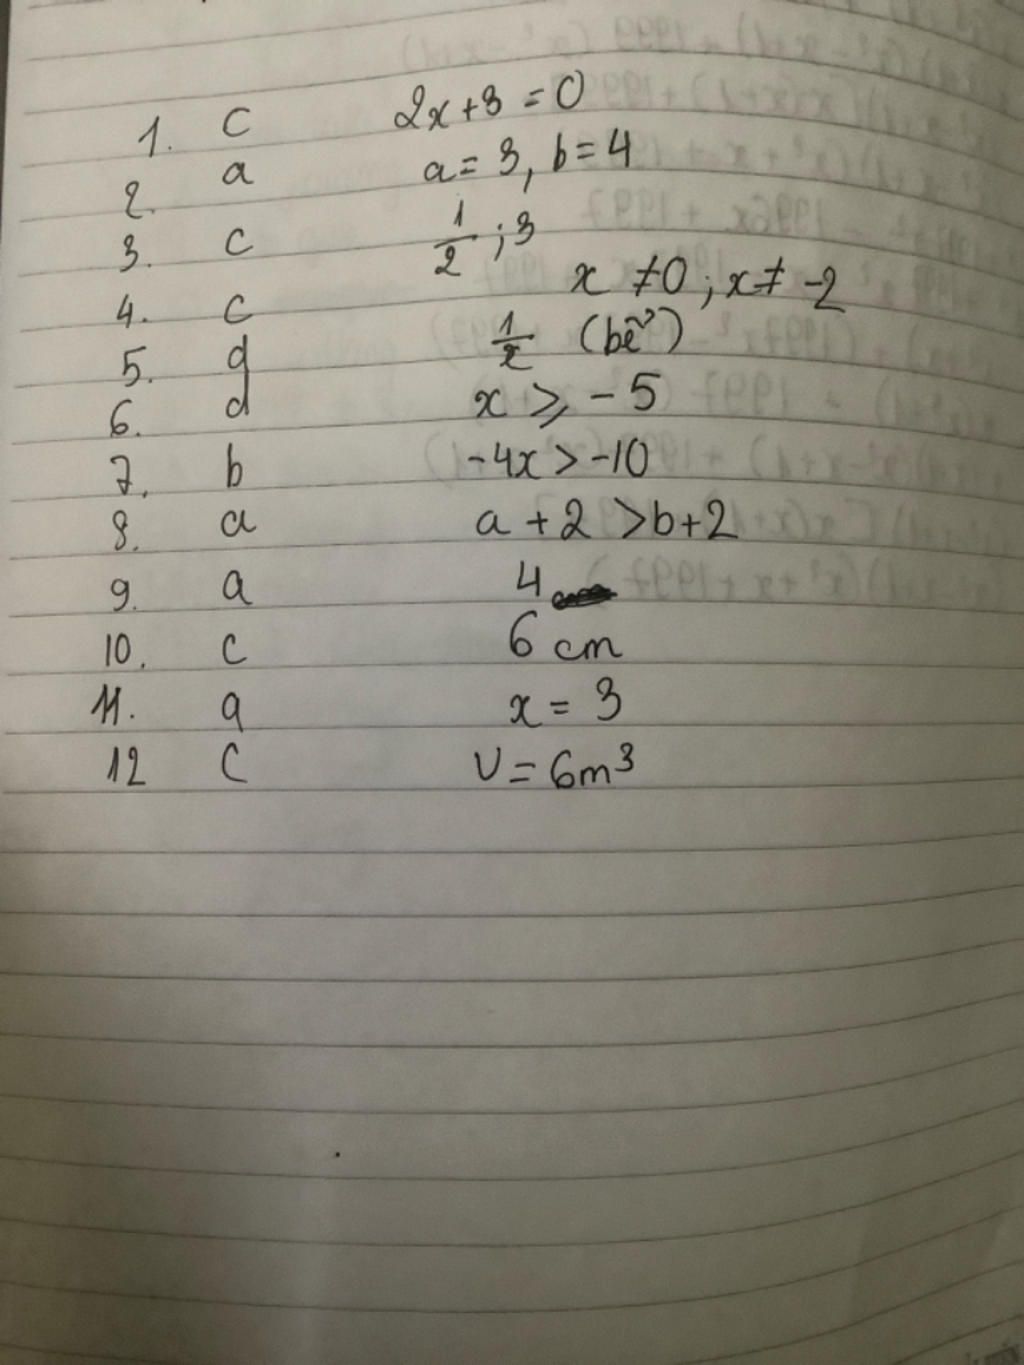 1. c 2x+3 = 0
2. a a = 3, b = 4
3. c 1/2 ; 3
4. c x ≠ 0 ; x ≠ -2
5. a 1/x (bể)
6. d x ⩾ -5
7. b -4x > -10
8. a a + 2 > b+2
9. a 4
10. c 6 cm
11. a x = 3
12 c V = 6m³